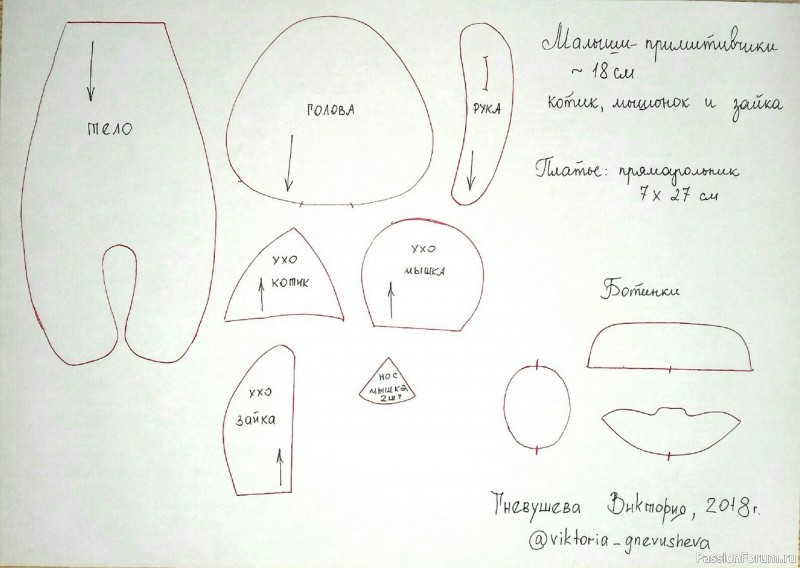 Малыши-примитивчики
~ 18 см
котик, мышонок и зайка
Платье: прямоугольник
7 х 27 см
тело
голова
рука
ухо
котик
ухо
мышка
Ботинки
ухо
зайка
нос
мышка
2шт
Гневушева Виктория, 2018г.
@viktoria_gnevusheva
PassionForum.ru